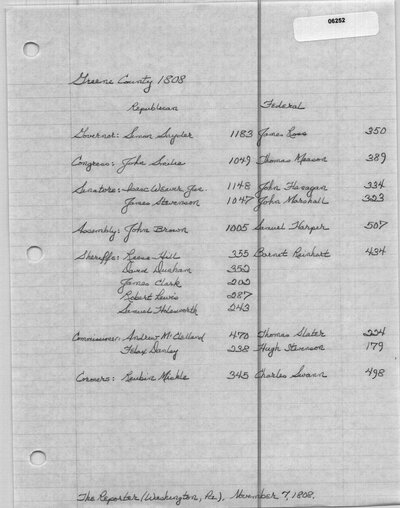 06252
Greene County 1808
Republican Federal
Governor: Simon Snyder 1183 James Ross 350
Congress: John Smilie 1049 Thomas Meason 389
Senators: Isaac Weaver Jun. 1148 John Flanagan 334
James Stevenson 1047 John Marshall 323
Assembly: John Brown 1005 Samuel Harper 507
Sheriffs: Reese Hill 355 Barnet Reinhart 434
David Durham 352
James Clark 202
Robert Lewis 287
Samuel Holsworth 243
Commissioner: Andrew McClelland 470 Thomas Slater 224
Felix Danley 238 Hugh Stevenson 179
Coroners: Reubin Mickle 345 Charles Swann 498
The Reporter (Washington, Pa), November 7, 1808.